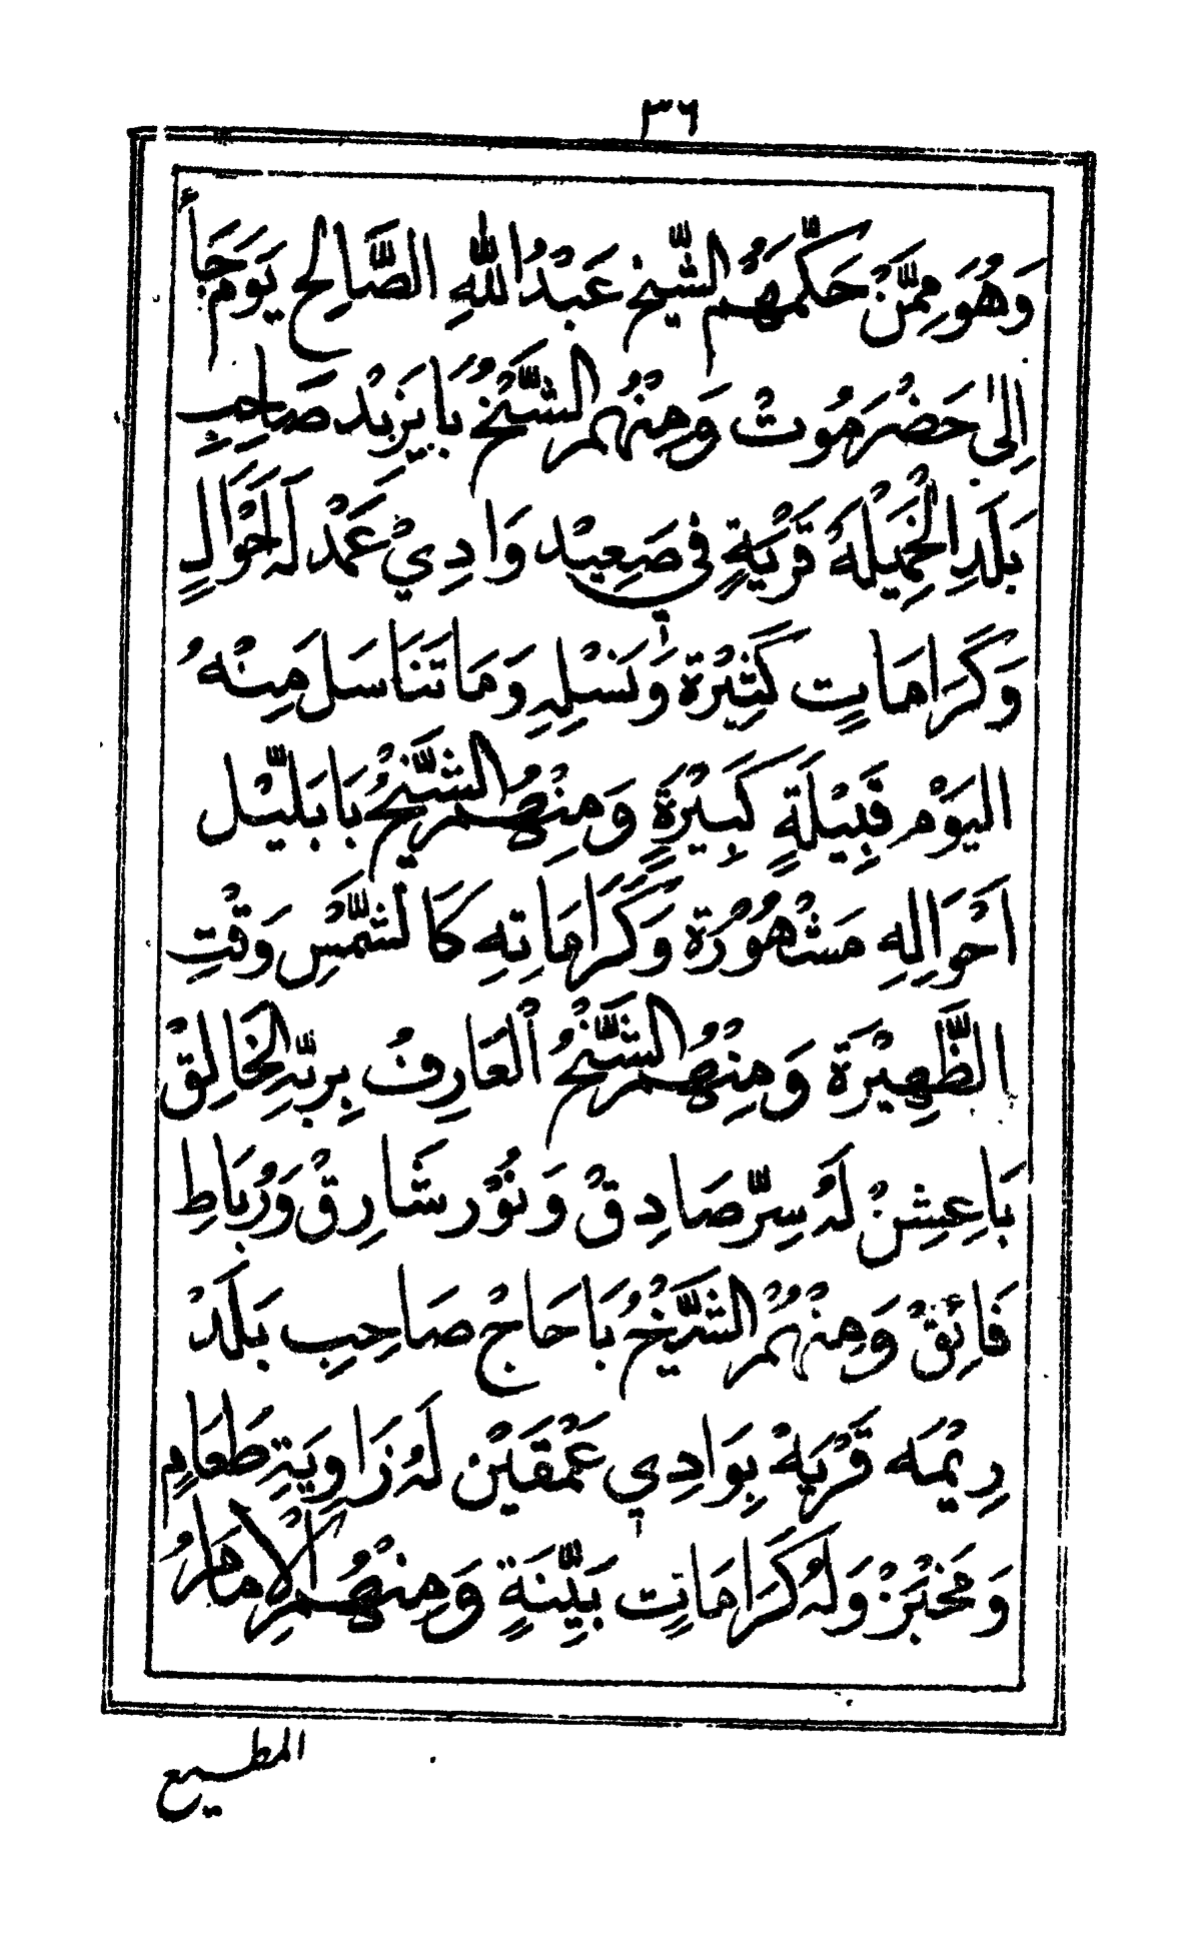 ٣٦
وَهُوَ مِمَّنْ حَكَّمَهُمُ الشَّيخ عَبْدُ اللّٰهِ الصَّالِح يَوَمَ جَأَ
اِلىٰ حَضْرَمُوتْ وَمِنْهُمُ الشَّيْخُ بَا يَزِيْد صَاحِبِ
بَلَدِ الْخَمِيْلَهْ قَرْيَةٍ فِي صَعِيْد وَادِيْ عَمْد لَهٗ اَحْوَالٍ
وَكَرَامَاتٍ كَثِيْرَة وَنَسْلِهِ وَمَا تَنَاسَلَ مِنْهُ
اليَوْم قَبِيْلَةٍ كَبِيْرَةٍ وَمِنْهُمُ الشَّيْخُ بَا بَلَيّْل
اَحْوَالِهِ مَشْهُوْرَة وَكَرَامَاتِهِ كَا لشَّمْسِ وَقْتِ
الظَّهِيْرَة وَمِنْهُمُ الشَّيْخُ الْعَارِفُ بِرَبِّهِ الخَالِقْ
بَاعِشِنْ لَهُ سِرّ صَادِقْ وَنُوْر شَارِقْ وَرُبَاطِ
فَائِقْ وَمِنْهُمُ الشَّيْخُ بَا حَاجْ صَاحِبِ بَلَدْ
رِيْمَه قَرْيَهْ بِوَادِي عَمْقَيْن لَهُ زَاوِيَةِ طَعَامٍ
وَمَخْبَزْ وَلَهُ كَرَامَاتٍ بَيِّنَةٍ وَمِنْهُمُ الْاِمَامُ
المطيع